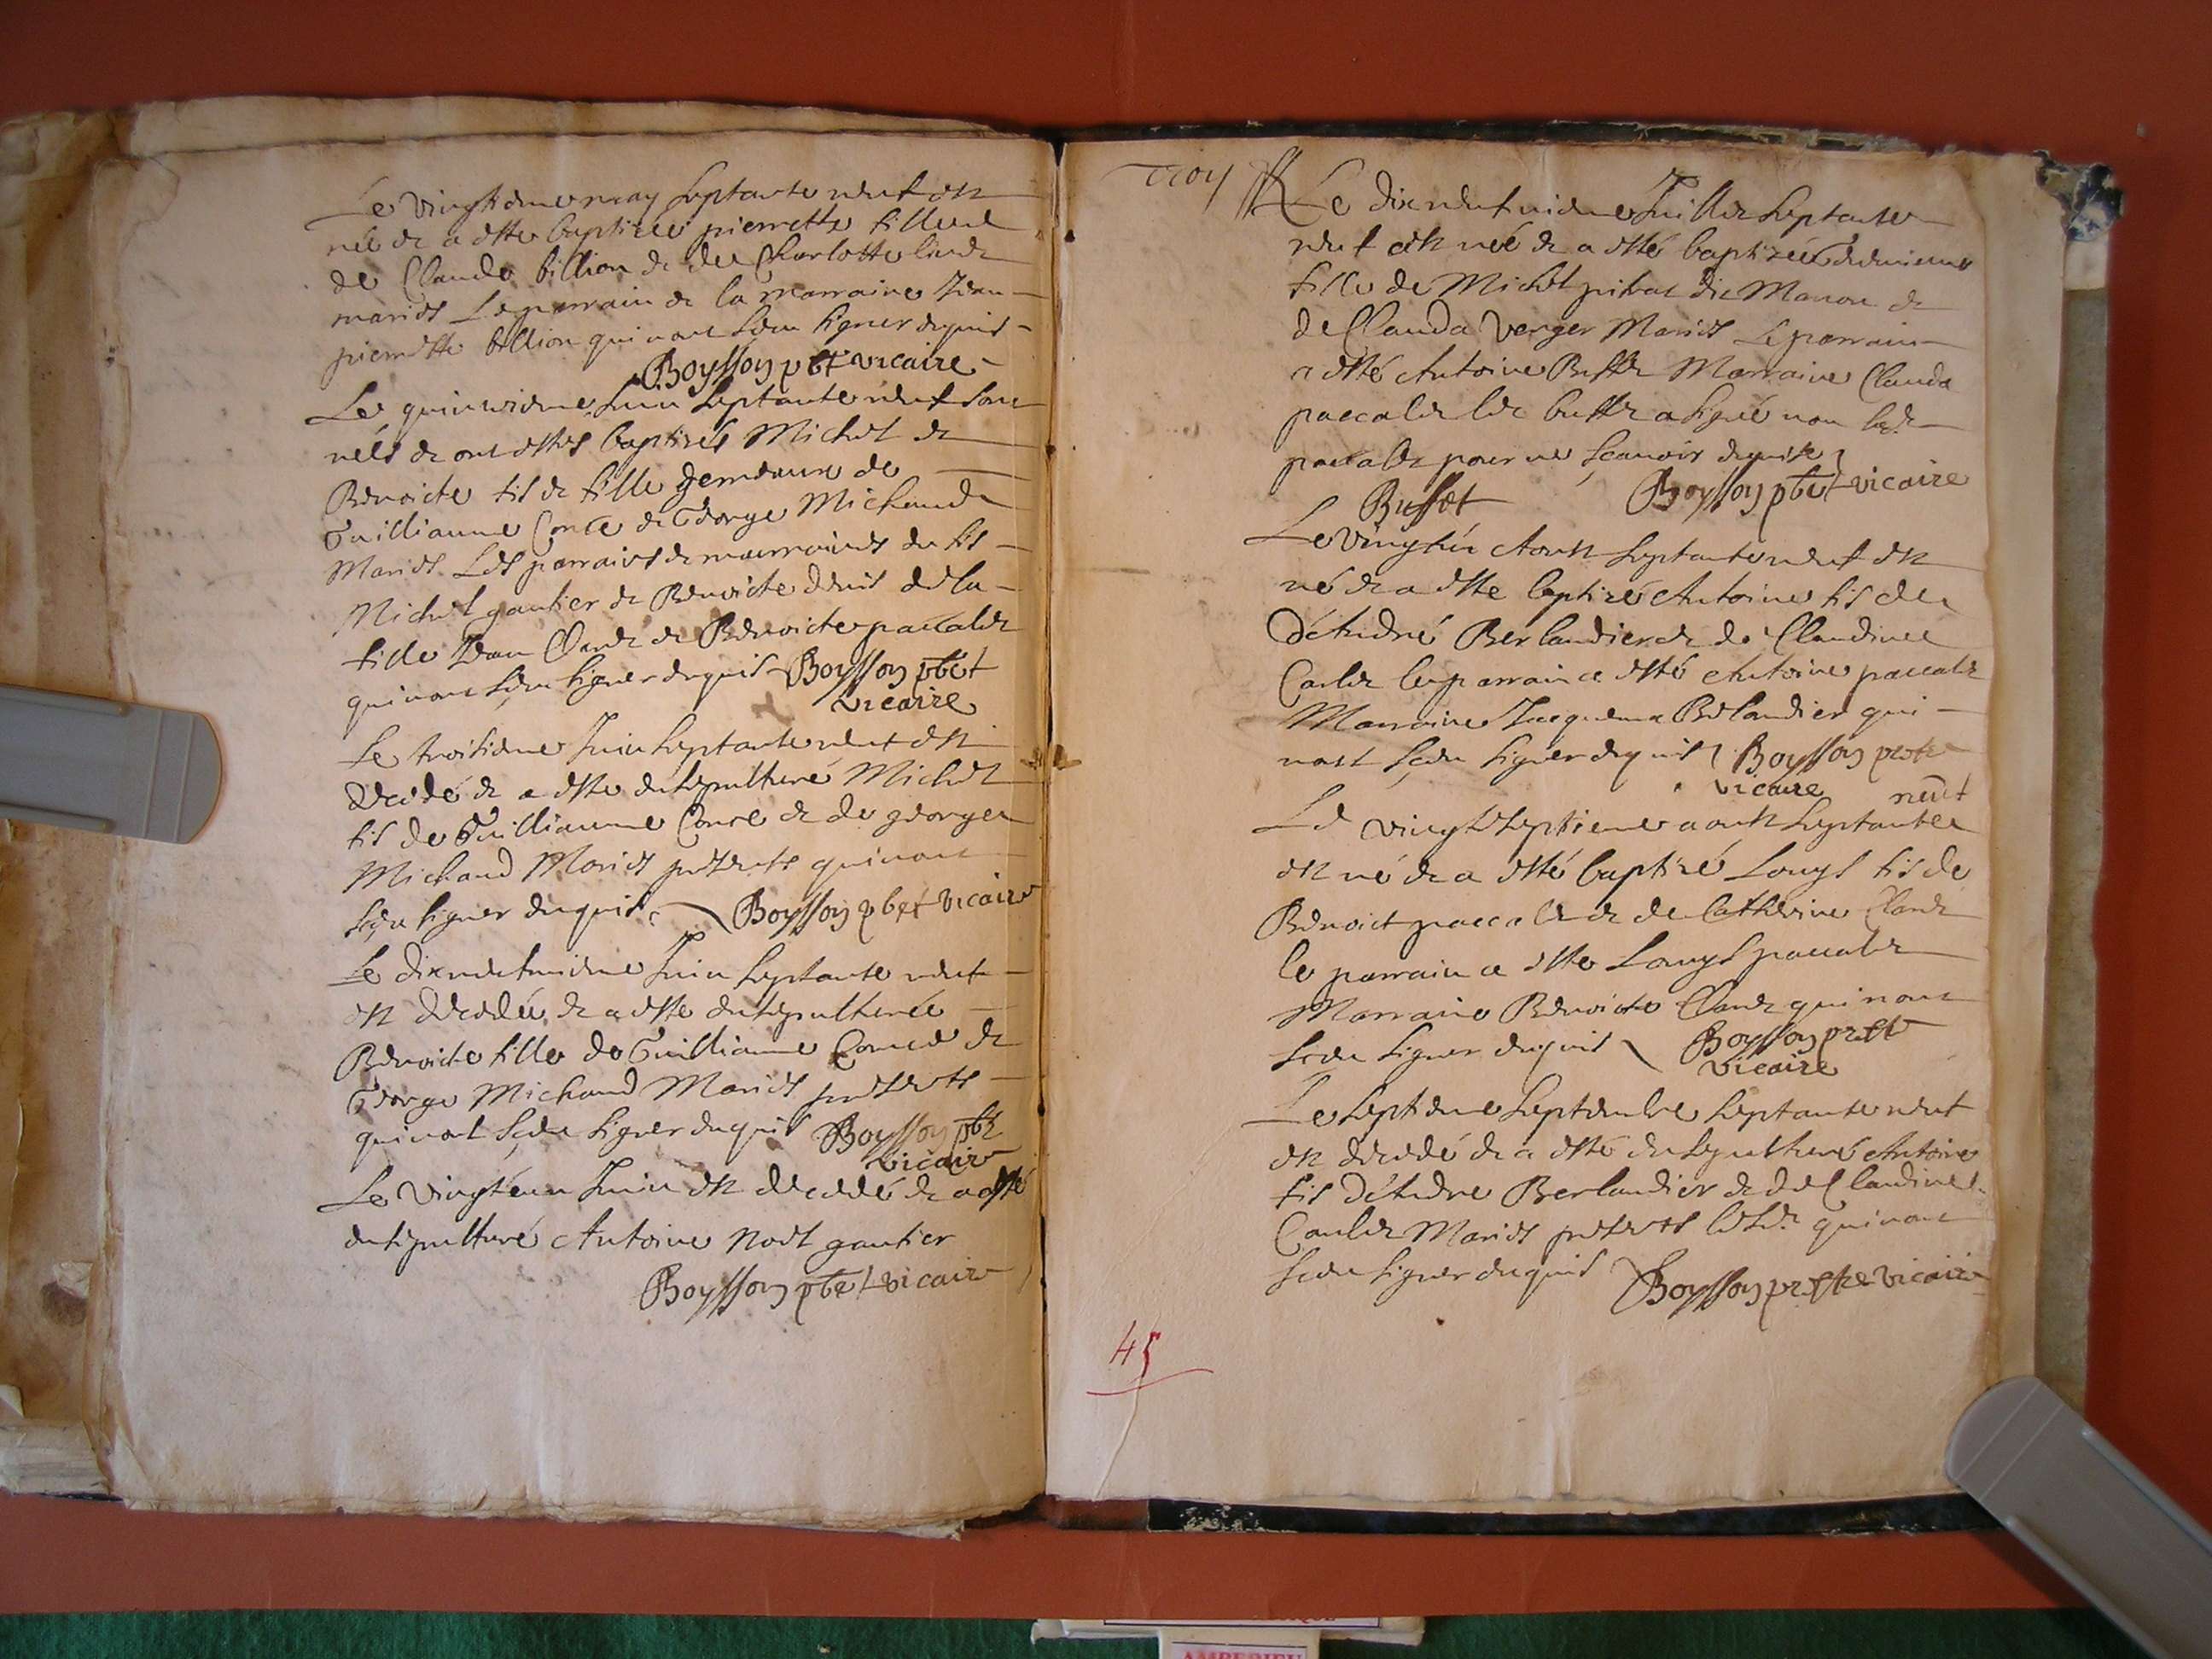 Le vingtiesme may septante neuf est
née et a esté baptizée pierrette fille
de Claude billion et de Charlotte
mariés Le parrain et la marraine Jean
pierrette billion qui nont sceu signer enquis
Boysson pbt vicaire
Le quinziesme Juin septante neuf sont
nés et ont estés baptizés Michel et
Benoicte fils et fille gemeaux de
Guillianme Conte et George Michaud
Mariés Les parrains et marraines du fils
Michel gautier et Benoicte denis de la
fille Jean Clard et Benoicte paccalet
qui nont sceu signer enquis Boysson pbt
vicaire
Le troisiesme Juin septante neuf est
decedé et a esté ensepulturé Michel
fils de Guilliaume Conte et de george
Michaud Mariés presents qui nont
sceu signer enquis Boysson pbt vicaire
Le dixneufuiesme Juin septante neuf
est decedée et a esté ensepulturée
Benoicte fille de Guilliaume Conte et
George Michaud Mariés presents
qui nont sceu signer enquis Boysson pbt
vicaire
Le vingt Juin est decedé et a esté
ensepulturé Antoine Noel gautier
Boysson pbt vicaire
Le dixneufuiesme Juillet septante
neuf est neé et a esté baptizée
fille de Michel dit Manon et
de Clauda Verger Mariés Le parrain
a esté Antoine Buffet Marraine Clauda
paccalet led buffet a signé non lad
paccalet pour ne sçauoir enquise
Buffet Boysson pbt vicaire
Le Aoust septante neuf est
né et a esté baptizé Antoine fils de
d'Andre Berlandier et de Claudine
Carlet le parrain a esté Antoine paccalet
Marraine Jacquema Berlandier qui
nont sceu signer enquis Boysson prestre
vicaire neuf
Le vingt septieme aoust septante
est né et a esté baptizé Louys fils de
Benoict paccalet et de Catherine Clard
le parrain a esté Louys paccalet
Marraine Benoicte Clard qui nont
sceu signer enquis Boysson prest
vicaire
Le septiesme septembre septante neuf
est decedé et a esté ensepulturé Antoine
fils d'Andre Berlandier et de Claudine
Carlet Mariés presents qui nont
sceu signer enquis Boysson prestre vicaire
45